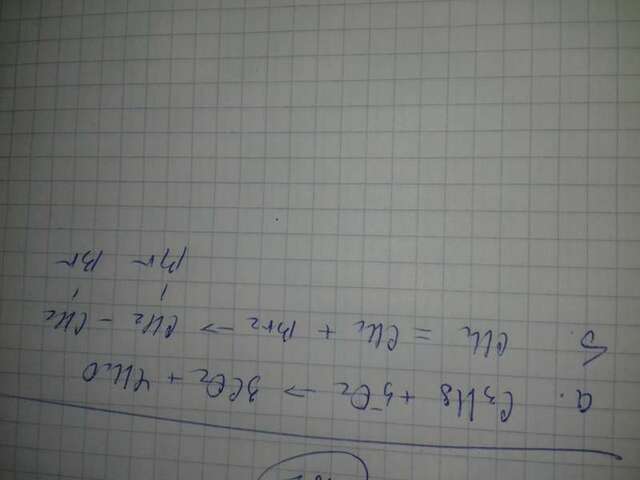 а. C3H8 + 5O2 → 3CO2 + 4H2O
б. CH2 = CH2 + Br2 → CH2 - CH2
Br Br